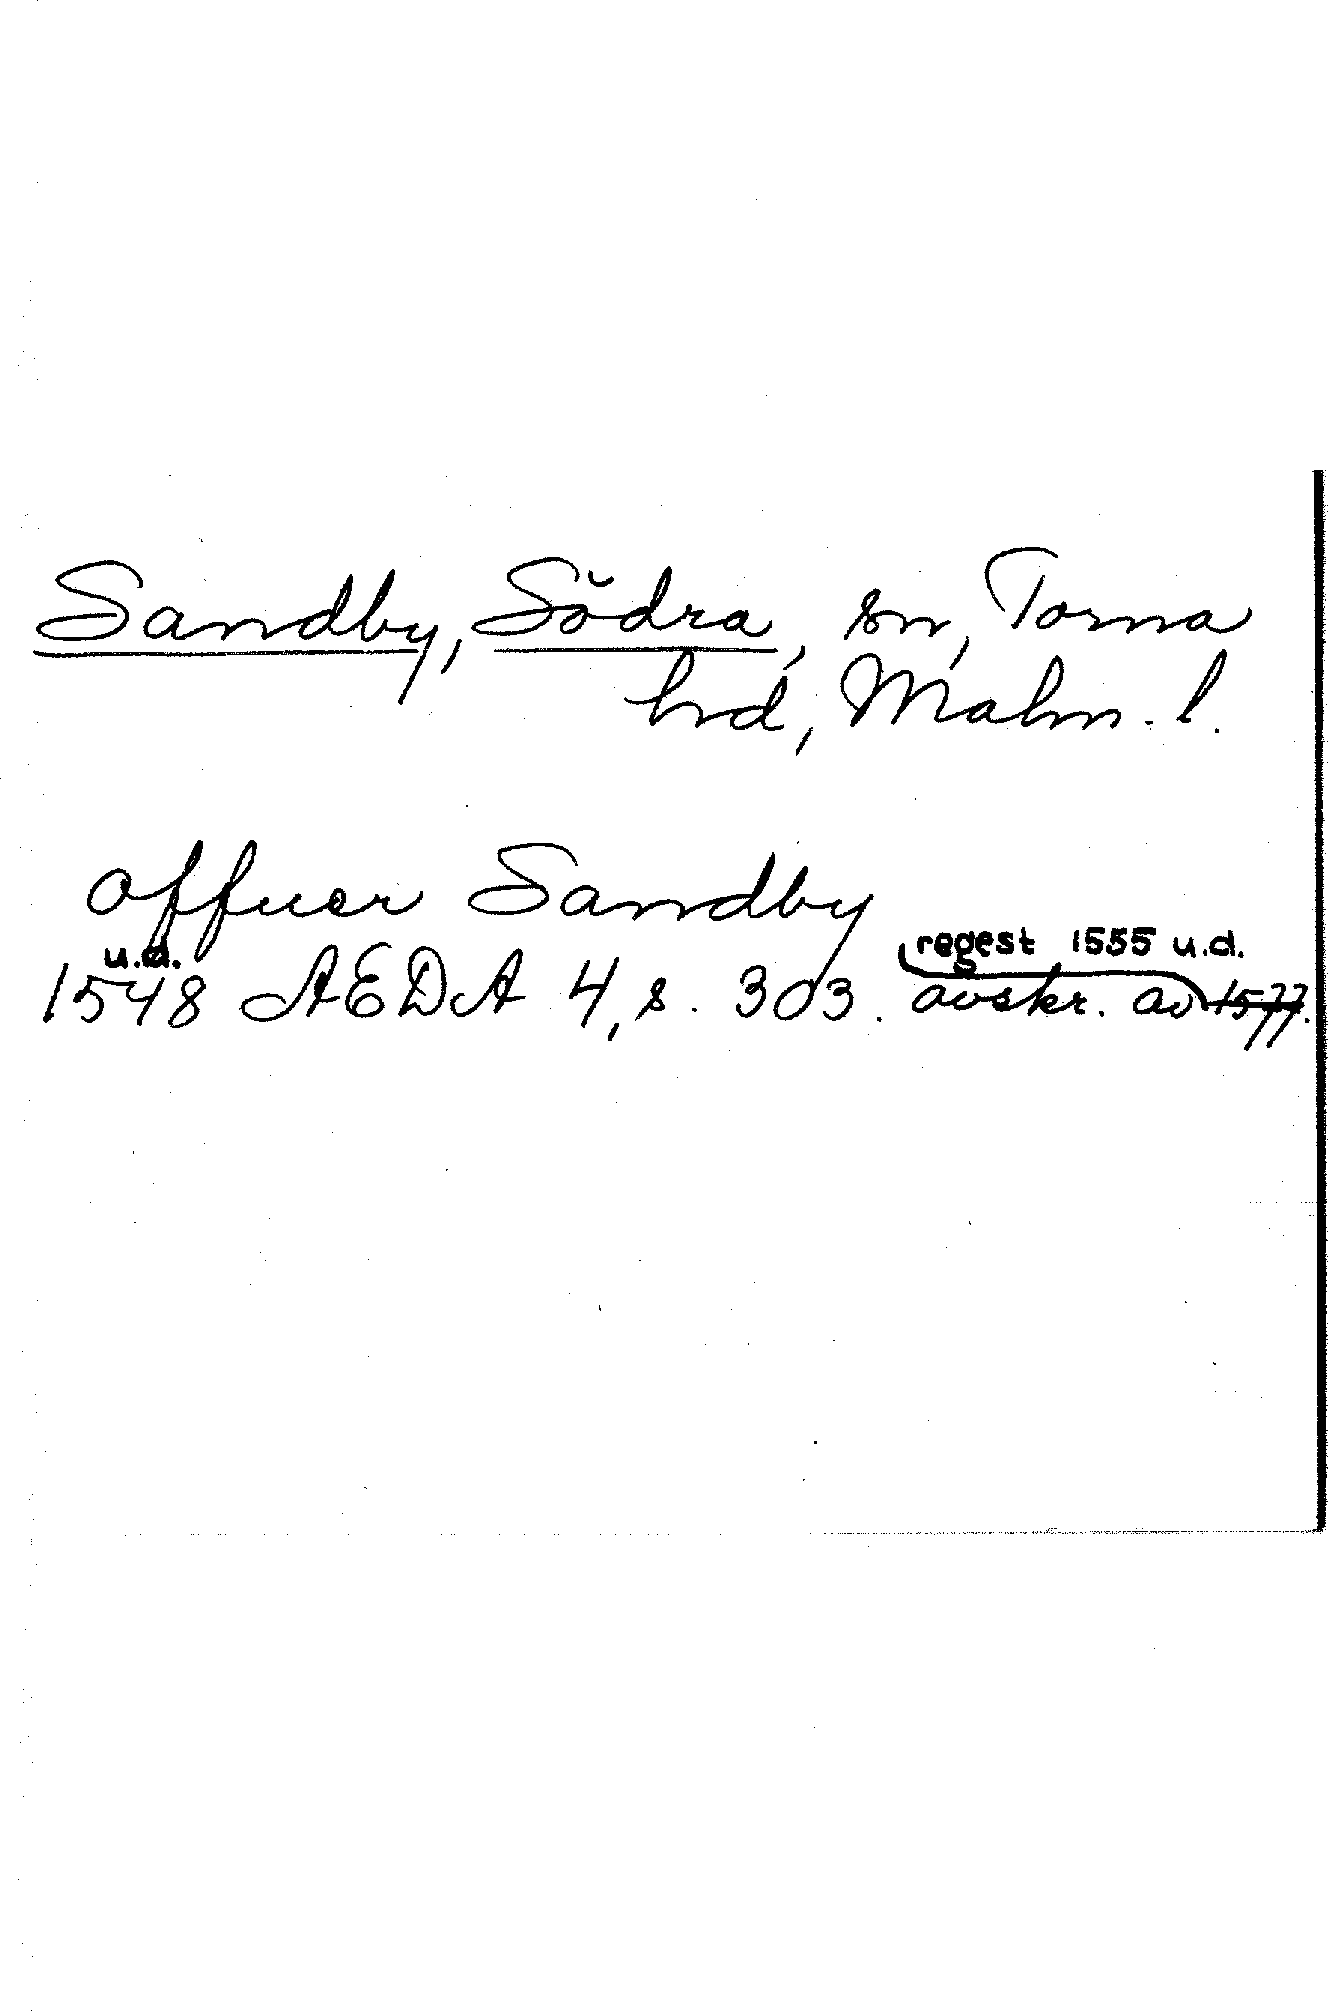 Sandby, Södra, sn, Torna
hd, Malm. l.
offuer Sandby
u.d. regest 1555 u.d.
1548 AEDA 4, s. 303. avskr. av 1577.